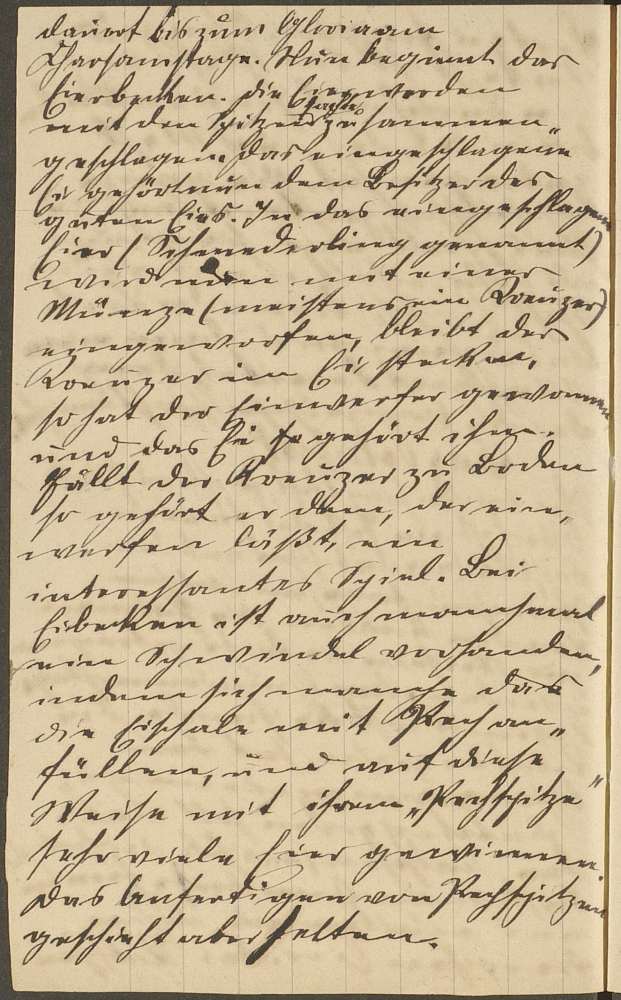 dauert bis zum Gloria am
Charsamstage. Nun beginnt das
Eierbecken. Die Eier werden
mit den Spitzen zusammen„
geschlagen. Das eingeschlagene
Ei gehört nun dem Besitzer des
guten Eies. In das eingeschlagene
Eier (genannt)
wird nun mit einer
Münze (meistens ein Kreuzer)
eingeworfen, bleibt der
Kreuzer im Ei stecken,
so hat der Einwerfer gewonnen
und das Ei gehört ihm.
Fällt der Kreuzer zu Boden
so gehört er dem, der ein„
werfen läßt, ein
interessantes Spiel. Bei
Eibecken ist auch manchmal
ein Schwindel vorhanden,
indem sich manche das
die Eischale mit Pech an„
füllen, und auf diese
Weise mit ihrem „Pechspitze“
sehr viele Eier gewinnen.
Das Anfertigen von Pechspitzen
geschieht aber selten.